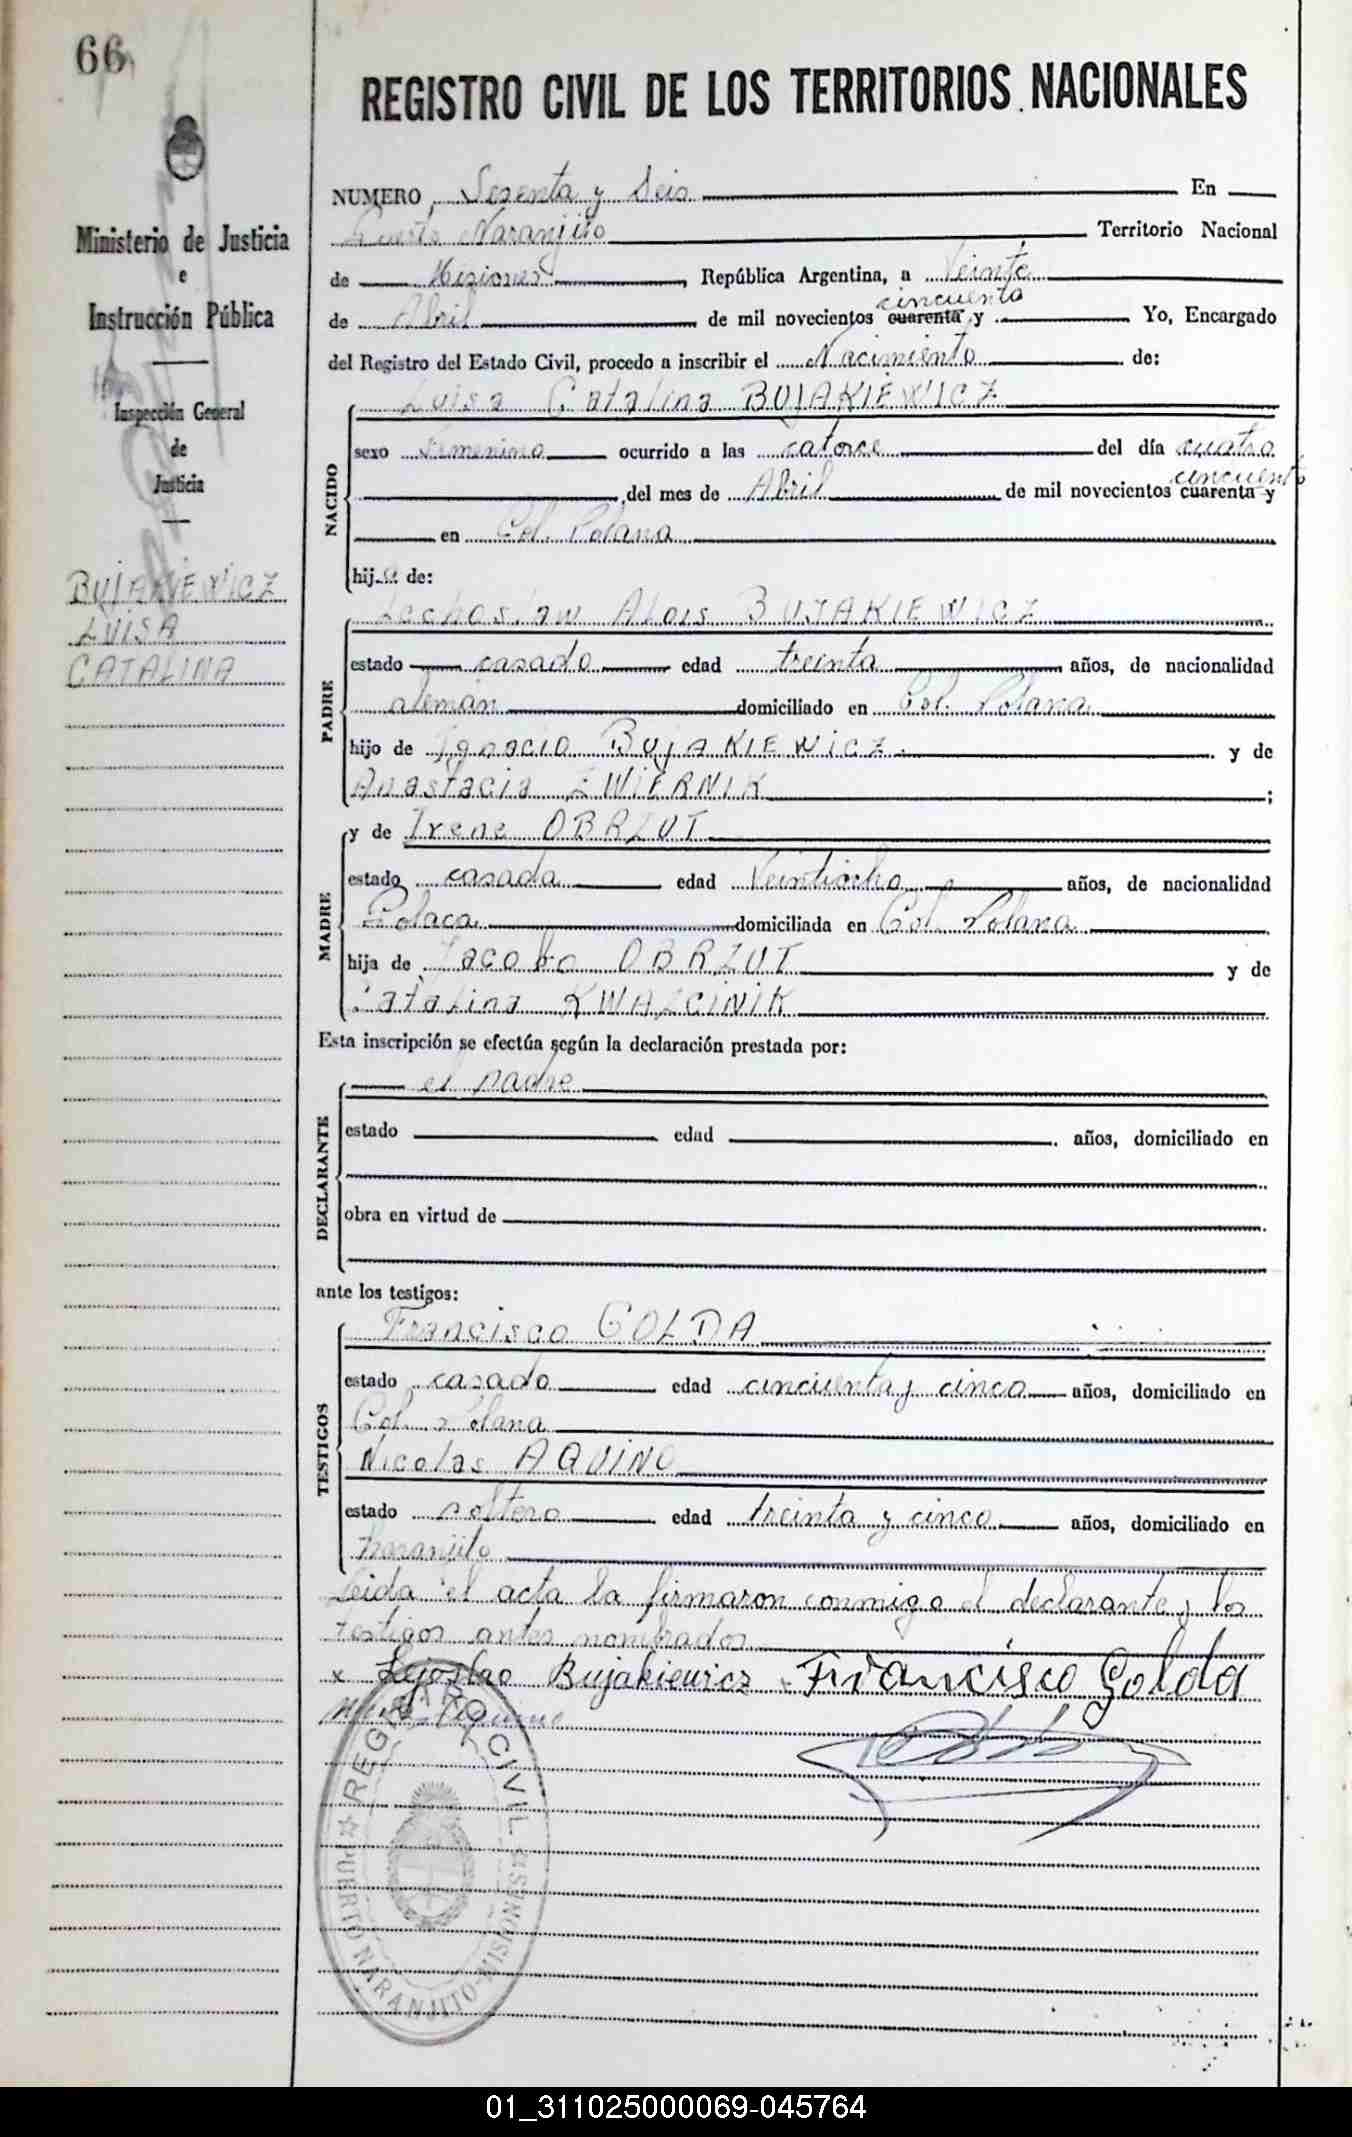 66
Ministerio de Justicia
e
Instrucción Pública
Inspección General
de
Justicia
BUJAKIEWICZ
LUISA
CATALINA
REGISTRO CIVIL DE LOS TERRITORIOS NACIONALES
NUMERO Sesenta y Seis En
Puerto Naranjito Territorio Nacional
de Misiones, República Argentina, a Veinte
cincuenta
de Abril de mil novecientos cuarenta y Yo, Encargado
del Registro del Estado Civil, procedo a inscribir el Nacimiento de:
NACIDO
Luisa Catalina BUJAKIEWICZ
sexo Femenino ocurrido a las catorce del día cuatro
cincuenta
del mes de Abril de mil novecientos cuarenta y
en Col. Polana
hija de:
PADRE
Lechoslaw Alois BUJAKIEWICZ
estado casado edad treinta años, de nacionalidad
alemán domiciliado en Col. Polana
hijo de Ignacio BUJAKIEWICZ y de
Anastacia ZWIERNIK;
MADRE
y de Irene OBRZUT
estado casada edad Veintiocho años, de nacionalidad
Polaca domiciliada en Col. Polana
hija de Jacobo OBRZUT y de
Catalina KWAZCINIK
Esta inscripción se efectúa según la declaración prestada por:
DECLARANTE
el padre
estado edad años, domiciliado en
obra en virtud de
ante los testigos:
TESTIGOS
Francisco GOLDA
estado casado edad cincuenta y cinco años, domiciliado en
Col. Polana
Nicolas AQUINO
estado soltero edad treinta y cinco años, domiciliado en
Naranjito
Leida el acta la firmaron conmigo el declarante y los
testigos antes nombrados
x Lejoslao Bujakiewicz Francisco Golda
REGISTRO CIVIL
PUERTO NARANJITO-MISIONES
01_311025000069-045764